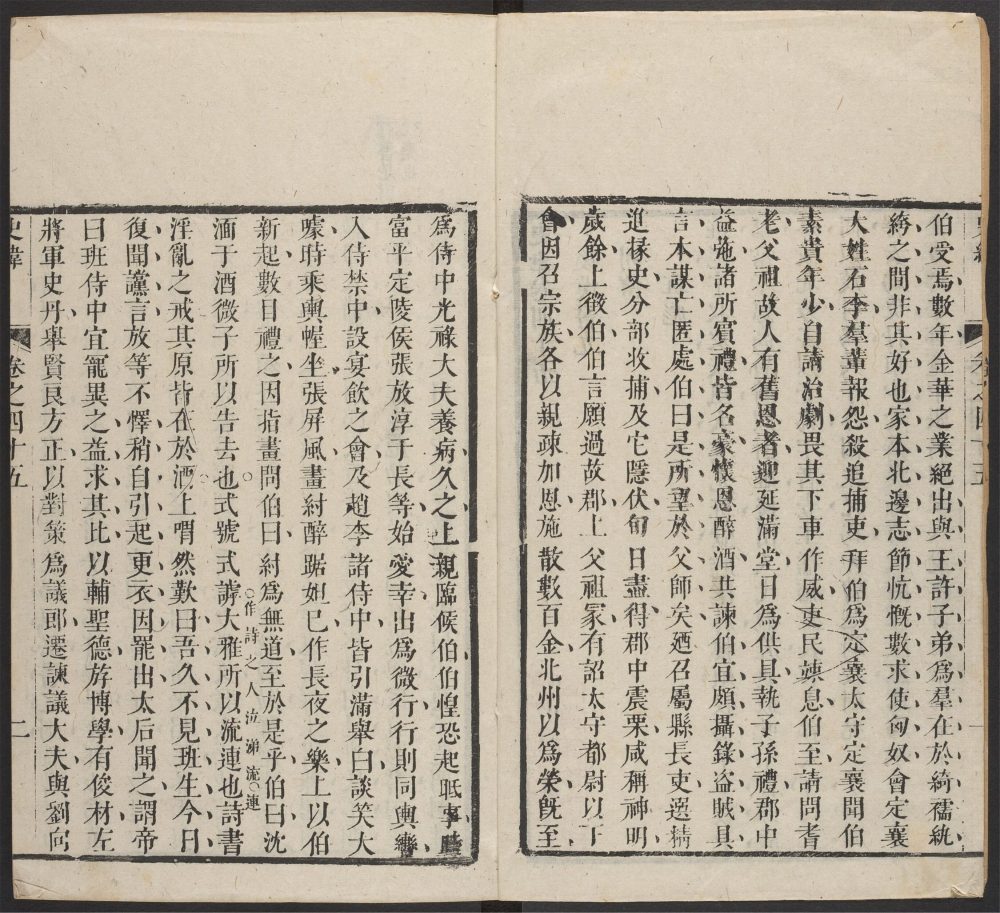 伯受焉數年金華之業絕出與王許子弟爲羣在於綺襦紈
綺之間非其好也家本北邊志節忼慨數求使匈奴會定襄
大姓石李羣輩報怨殺追捕吏拜伯爲定襄太守定襄聞伯
素貴年少自請治劇畏其下車作威吏民竦息伯至請問耆
老父祖故人有舊恩者迎延滿堂日爲供具執子孫禮郡中
益弛諸所賓禮皆名豪懷恩醉酒共諫伯宜頗攝錄盜賊具
言本謀亡匿處伯曰是所望於父師矣廼召屬縣長吏選精
進掾史分部收捕及它隱伏旬日盡得郡中震栗咸稱神明
歲餘上徵伯伯言願過故郡上父祖冢有詔太守都尉以下
會因召宗族各以親疎加恩施散數百金北州以爲榮旣至
爲侍中光祿大夫養病久之上親臨候伯伯惶恐起眂事時
富平定陵侯張放淳于長等始愛幸出爲微行行則同輿轡
入侍禁中設宴飲之會及趙李諸侍中皆引滿舉白談笑大
噱時乘輿幄坐張屏風畫紂醉踞妲己作長夜之樂上以伯
新起數目禮之因指畫問伯曰紂爲無道至於是乎伯曰沈
湎于酒微子所以告去也式號式謼大雅所以流連也詩書
作詩之人泣涕流連
淫亂之戒其原皆在於酒上喟然歎曰吾久不見班生今日
復聞讜言放等不懌稍自引起更衣因罷出太后聞之謂帝
曰班侍中宜寵異之益求其比以輔聖德斿博學有俊材左
將軍史丹舉賢良方正以對策爲議郎遷諫議大夫與劉向
史緯
卷之四十五
二